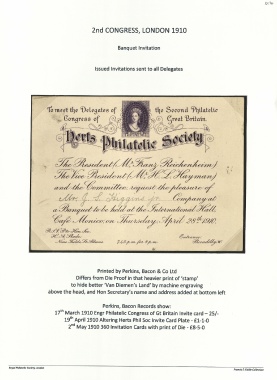 2nd CONGRESS, LONDON 1910
Banquet Invitation
Issued Invitations sent to all Delegates
To meet the Delegates of the Second Philatelic
Congress of Great Britain.
Herts Philatelic Society
The President (M. Franz Reichenheim)
The Vice President (M. H. L. Hayman)
and the Committee, request the pleasure of
Mr. J. S. Higgins jr Company at
a Banquet to be held at the International Hall,
Café Monico, on Thursday, April 28th 1910.
Piccadilly
Printed by Perkins, Bacon & Co Ltd
Differs from Die Proof in that heavier print of 'stamp'
to hides better 'Van Diemen's Land' by machine engraving
above the head, and Hon Secretary's name and address added at bottom left
Perkins, Bacon Records show:
17th March 1910 Engr Philatelic Congress of Gt Britain invite card – 25/-
19th April 1910 Altering Herts Phil Soc Invite Card Plate - £1-1-0
2nd May 1910 360 Invitation Cards with print of Die - £8-5-0
Royal Philatelic Society London